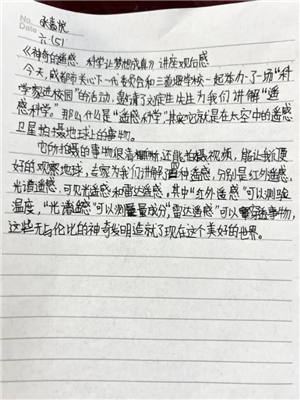 No. 
Date
六(5)
《神奇的遥感,科学让梦想成真》讲座观后感
今天,成都市关心下一代委员会和三道堰学校一起举办了一场“科
学家进校园”的活动,邀请了刘定生先生为我们讲解“遥
感科学”。那么什么是“遥感科学”其实它就是在太空中的遥感
卫星拍摄地球上的事物。
它所拍摄的事物很清晰,还能拍摄视频,能让我们更
好的观察地球,专家为我们讲解了四种遥感,分别是红外遥感,
光谱遥感,可见光遥感和雷达遥感,其中“红外遥感”可以测验
温度,“光谱遥感”可以测量成分,“雷达遥感”可以穿透事物,
这些无与伦比的神奇发明造就了现在这个美好的世界。